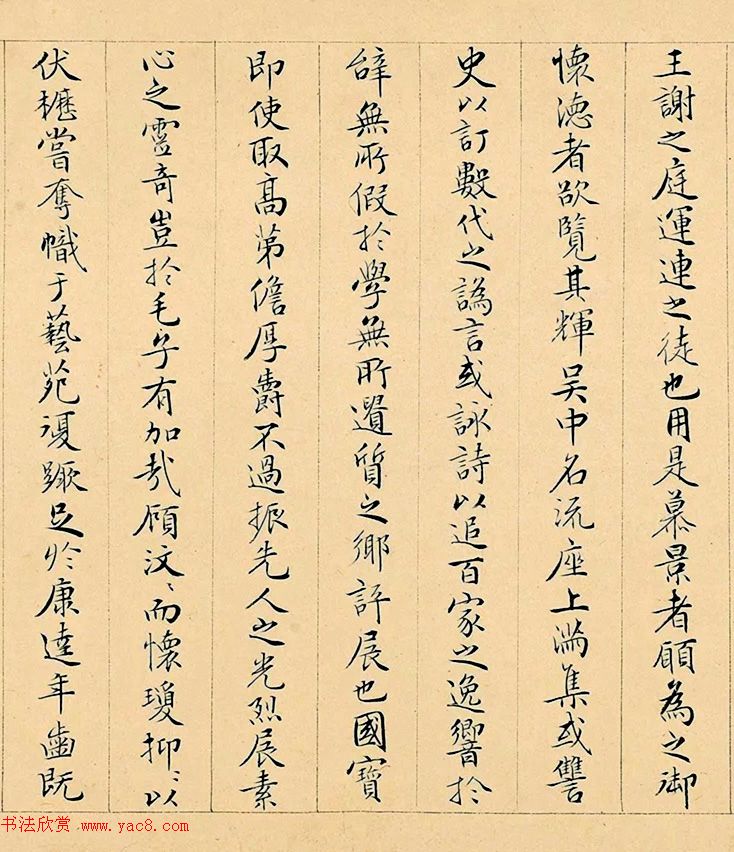 王謝之庭運連之徒也用是慕景者願為之御
懷德者欲覽其輝吳中名流座上滿集或讐
史以訂數代之譌言或詠詩以追百家之逸響於
辭無所假於學無所遺質之鄉評展也國寶
即使取高第儋厚爵不過振先人之光烈展素
心之靈奇豈於毛子有加哉顧汶〻而懷瓊抑〻以
伏櫪嘗奪幟于藝苑復蹶足於康逵年齒既
书法欣赏 www.yac8.com